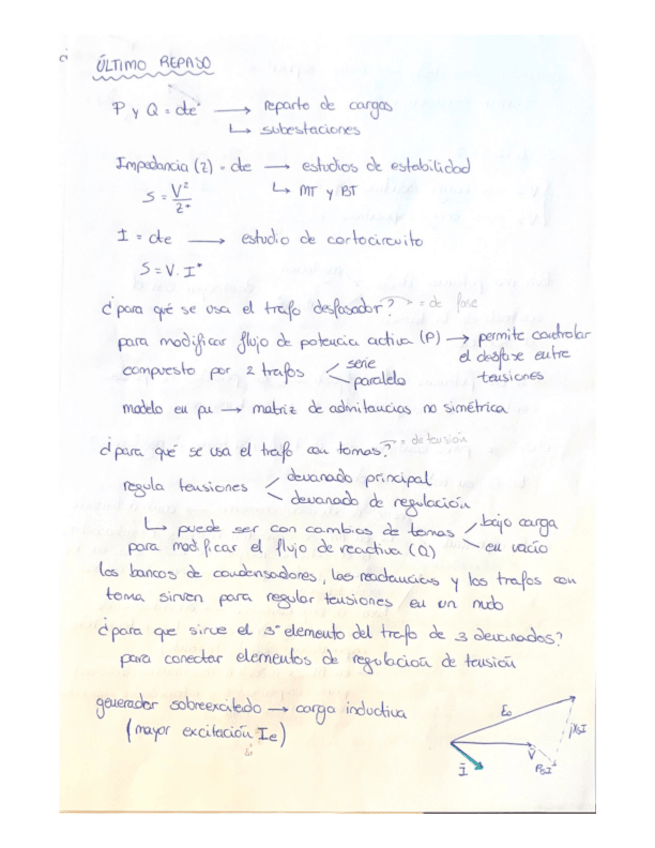 ÚLTIMO REPASO
P y Q = cte → reparto de cargas
↳ subestaciones
Impedancia (Z) = cte → estudios de estabilidad
S = V²/Z* ↳ MT y BT
I = cte → estudio de cortocircuito
S = V . I*
¿para qué se usa el trafo desfasador? → = de fase
para modificar flujo de potencia activa (P) → permite controlar
el desfase entre
tensiones
compuesto por 2 trafos serie
paralelo
modelo en pu → matriz de admitancias no simétrica
¿para qué se usa el trafo con tomas? = de tensión
regula tensiones devanado principal
devanado de regulación
↳ puede ser con cambios de tomas bajo carga
en vacío
para modificar el flujo de reactiva (Q)
los bancos de condensadores, las reactancias y los trafos con
toma sirven para regular tensiones en un nudo
¿para que sirve el 3er elemento del trafo de 3 devanados?
para conectar elementos de regulación de tensión
generador sobreexcitado → carga inductiva
(mayor excitación Ie)
E₀
jXsI
V
RsI
I